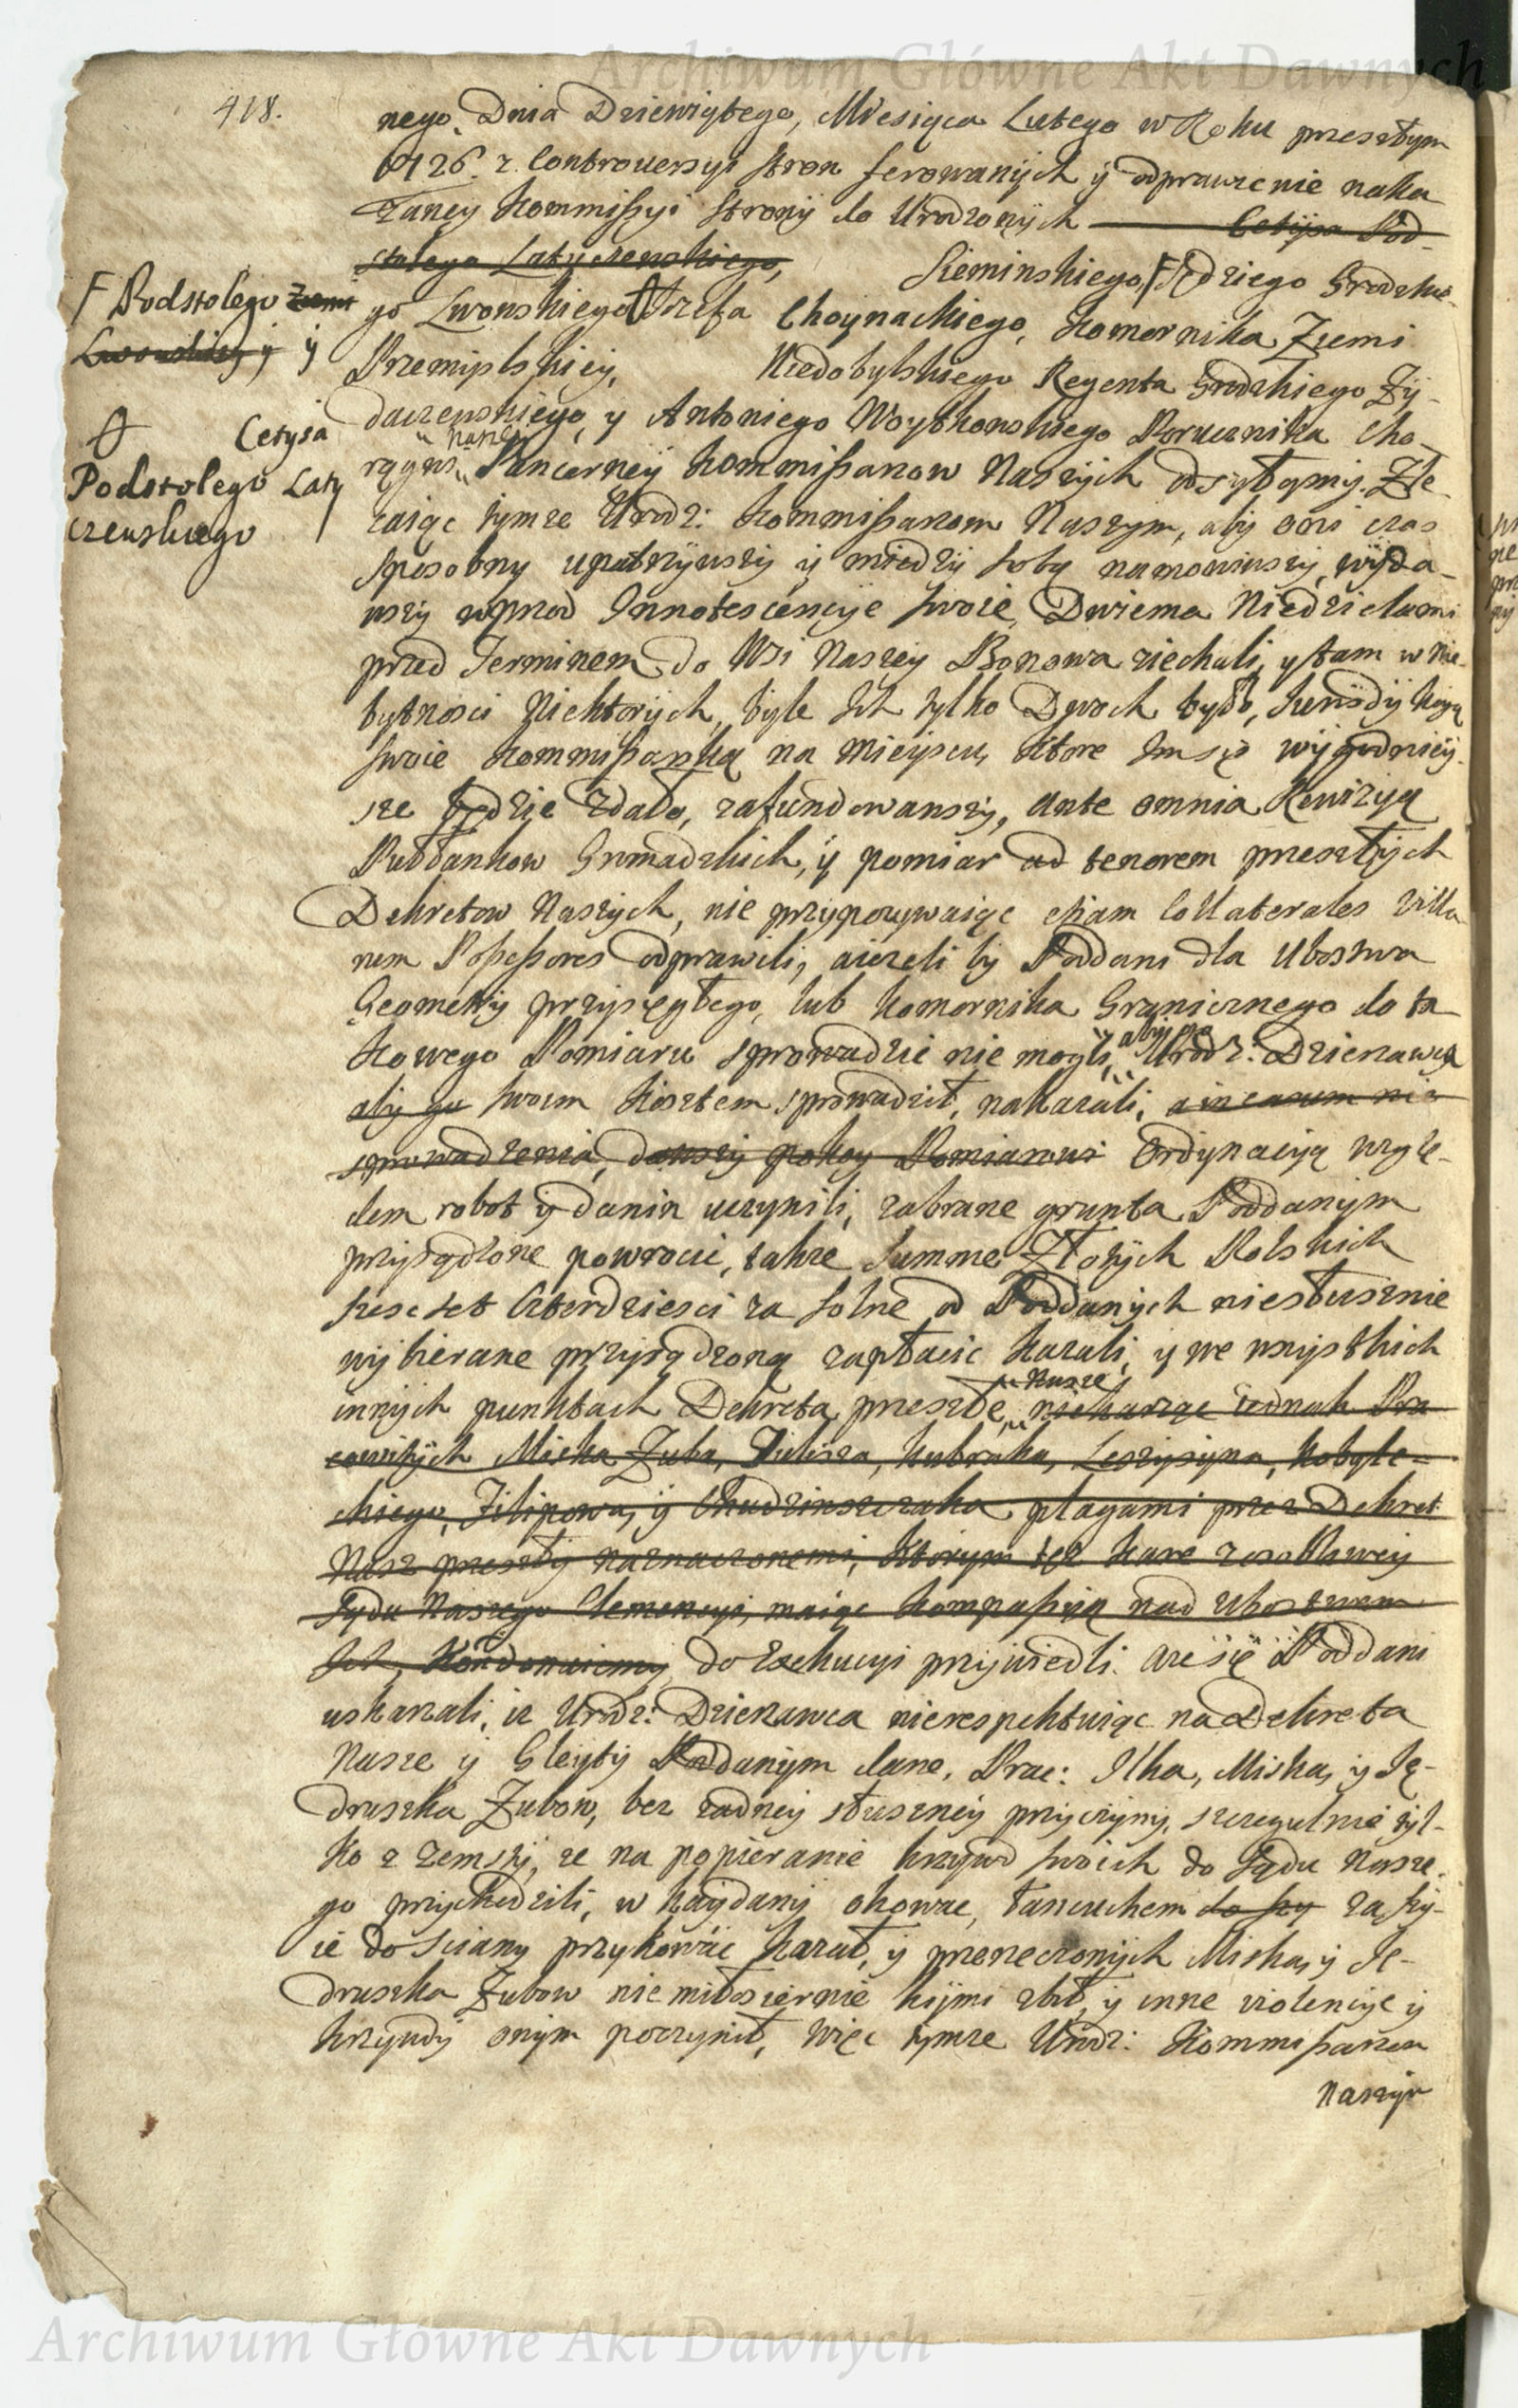 Archiwum Główne Akt Dawnych
418.
nego, Dnia Dziewiątego, Miesiąca Lutego w Roku przeszłym
1726. z Controuersyi stron ferowanych y odprawienie naka
zaney Kommissyi Strony do Urodzonych Cetysa Pod-
stolego Latyczewskiego, Sieminskiego, F Sędziego Grodzkie-
F Podstolego Ziemi
Lwowskiey y y
go Lwowskiego Jozefa Choynackiego, Komornika Ziemi
Przemyslskiey, Niedobylskiego Regenta Grodzkiego Zy-
daczewskiego, y Antoniego Woytkowskiego Porucznika Cho-
Cetysa
Podstolego Laty
czewskiego
naszey
rągwi Pancerney Kommissarzow Naszych odsyłamy. Zle-
caiąc tymze Urodz: Kommissarzom Naszym, aby oni czas
sposobny upatrzywszy y miedzy sobą namowiwszy, wyda-
wszy wprzod Innotescencye swoie, Dwiema Niedzielami
przed Terminem do Wsi Naszey Bonowa ziechali, y tam w Nie-
bytnosci Niektorych, byle Ich tylko Dwoch było, Jurysdykcyą
swoie Kommissarską na Mieyscu, ktore Im się wygodniey-
sze będzie zdało, zafundowawszy, Ante omnia Rewizyą
Gruntow Gromadzkich, y pomiar ad tenorem przeszłych
Dekretow Naszych, nie przypozywaiąc etiam Collaterales villa
rum Possessores odprawili, aiezeli by Poddani dla Ubostwa
Geometry przysięgłego, lub Komornika Granicznego do ta
kowego Pomiaru sprowadzic nie mogli, aby go Urodz: Dzierzawca
aby go swoim kosztem sprowadził, nakazali, a in casum nie
sprowadzenia, dawszy pokoy Pomiarowi Ordynacyą wzglę-
dem robot y danin uczynili, zabrane grunta Poddanym
przysądzone powrocic, takze Summe Złotych Polskich
szescset czterdziesci za solne od Poddanych niesłusznie
wybierane przysądzoną zapłacic kazali, y we wszystkich
Nasze
innych punktach Dekreta przeszłe, niekarząc iednak Pra
cowitych Miska Zuba, Kubraka, Leszysyna, Kobyle-
ckiego, Filipowa, y plagami przez Dekret
Nasz przeszły naznaczonemi, ktorym tez kare z osobliwey
Sądu Naszego Clemencyi, maiąc kompassyą nad Ubostwem
Ich, Kondonuiemy do Exekucyi przywiedli. aze się Poddani
uskarzali, iz Urodz: Dzierzawca nierespektuiąc na Dekreta
Nasze y Gleyty Poddanym dane, Prac: Ilka, Miska, y Ję-
druszka Zubow, bez zadney słuszney przyczyny, szczegulnie tyl-
ko z zemsty, ze na popieranie krzywd swoich do Sądu Nasze-
go przychodzili, w kaydany okowac, łancuchem do szy za szy-
ie do sciany przykowac kazał, y przerzeczonych Miska, y Ję-
druszka Zubow niemiłosiernie kiymi zbił, y inne violencye y
krzywdy onym poczynił, więc tymze Urodz: Kommissarzom
Naszym
Archiwum Główne Akt Dawnych